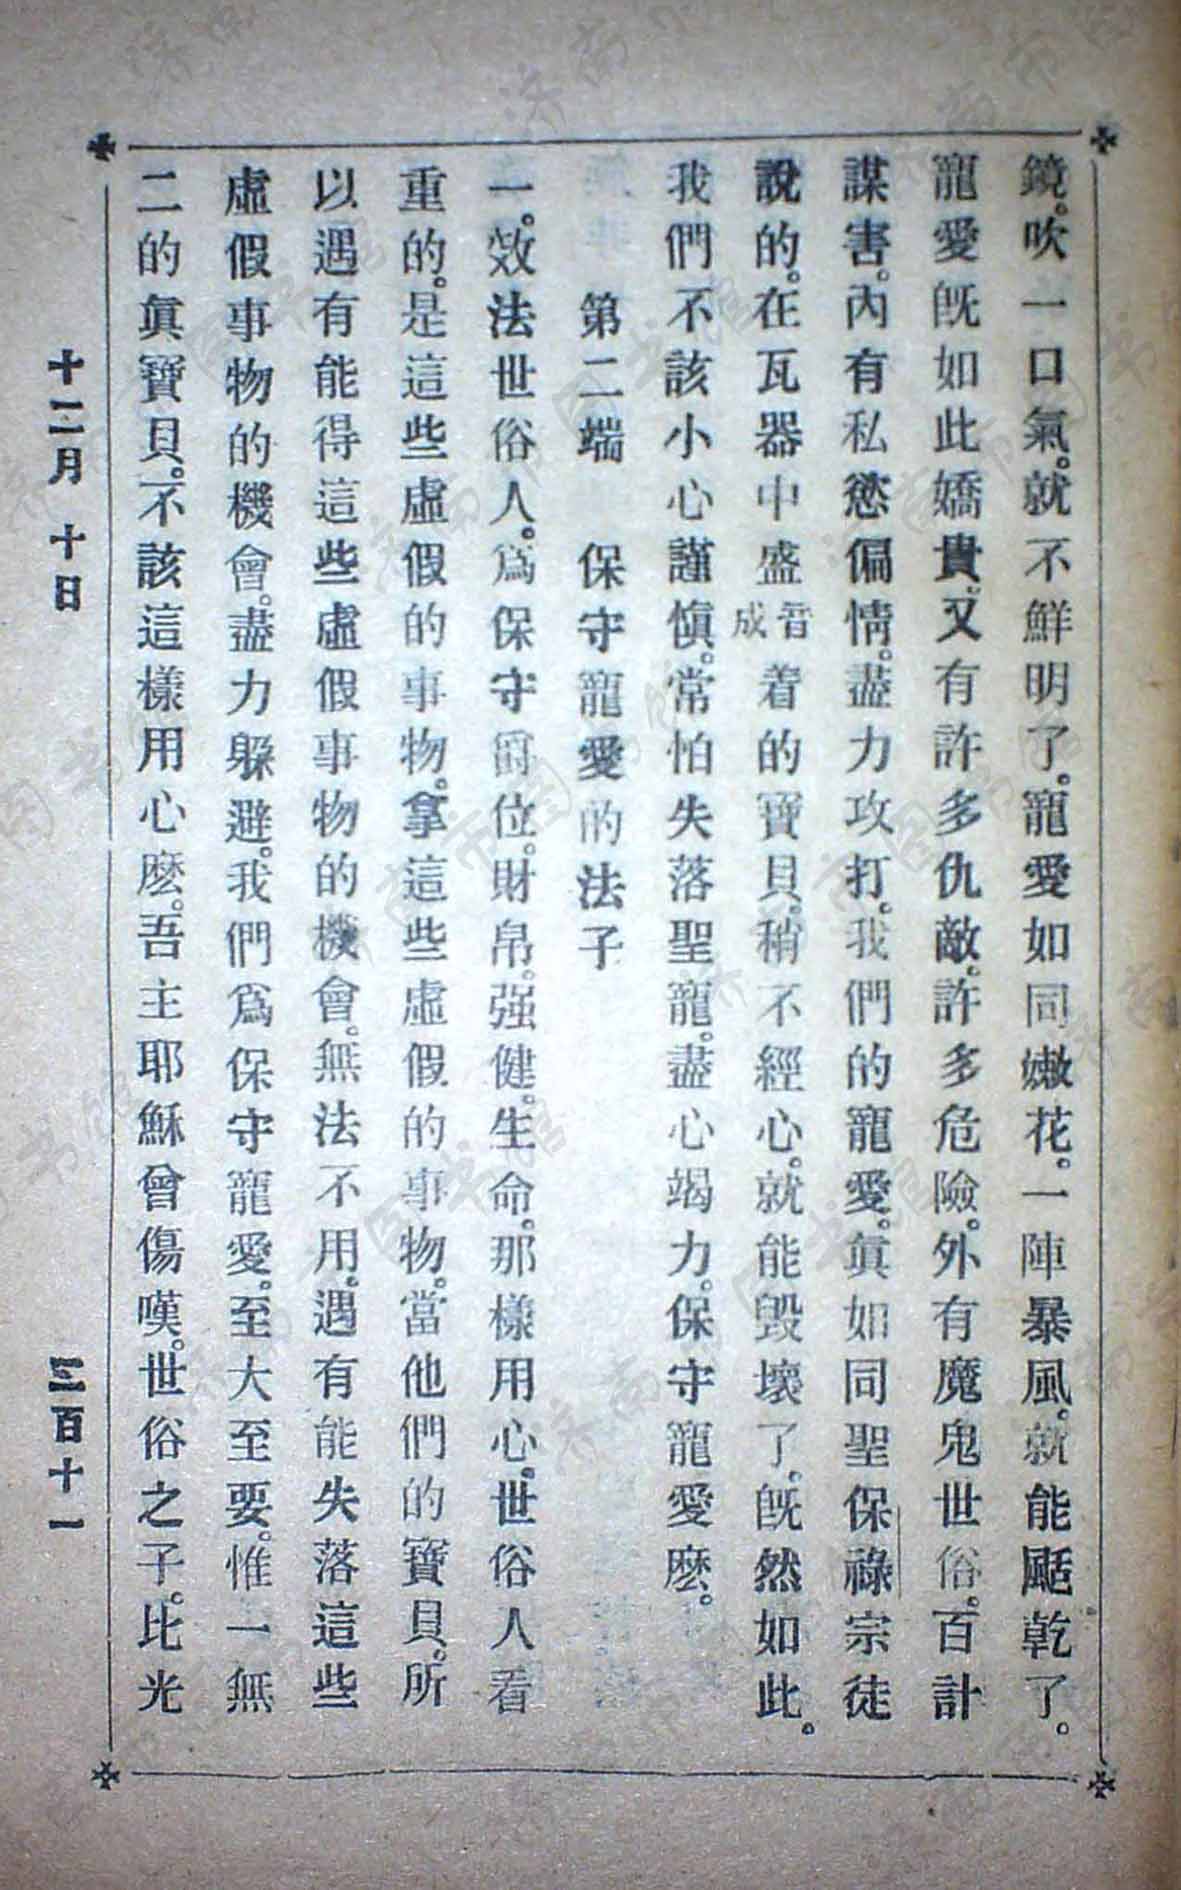 鏡。吹一口氣。就不鮮明了。寵愛如同嫩花。一陣暴風。就能颳乾了。
寵愛旣如此嬌貴。又有許多仇敵。許多危險。外有魔鬼世俗。百計
謀害。內有私慾偏情。盡力攻打。我們的寵愛。眞如同聖保祿宗徒
說的。在瓦器中盛音成着的寶貝。稍不經心。就能毀壞了。旣然如此。
我們不該小心謹愼。常怕失落聖寵。盡心竭力。保守寵愛麽。
第二端 保守寵愛的法子
一。效法世俗人。爲保守爵位。財帛。强健。生命。那樣用心。世俗人看
重的。是這些虛假的事物。拿這些虛假的事物。當他們的寶貝。所
以遇有能得這些虛假事物的機會。無法不用。遇有能失落這些
虛假事物的機會。盡力躲避。我們爲保守寵愛。至大至要。惟一無
二的眞寶貝。不該這樣用心麽。吾主耶穌曾傷嘆。世俗之子。比光
十二月 十日
三百十一